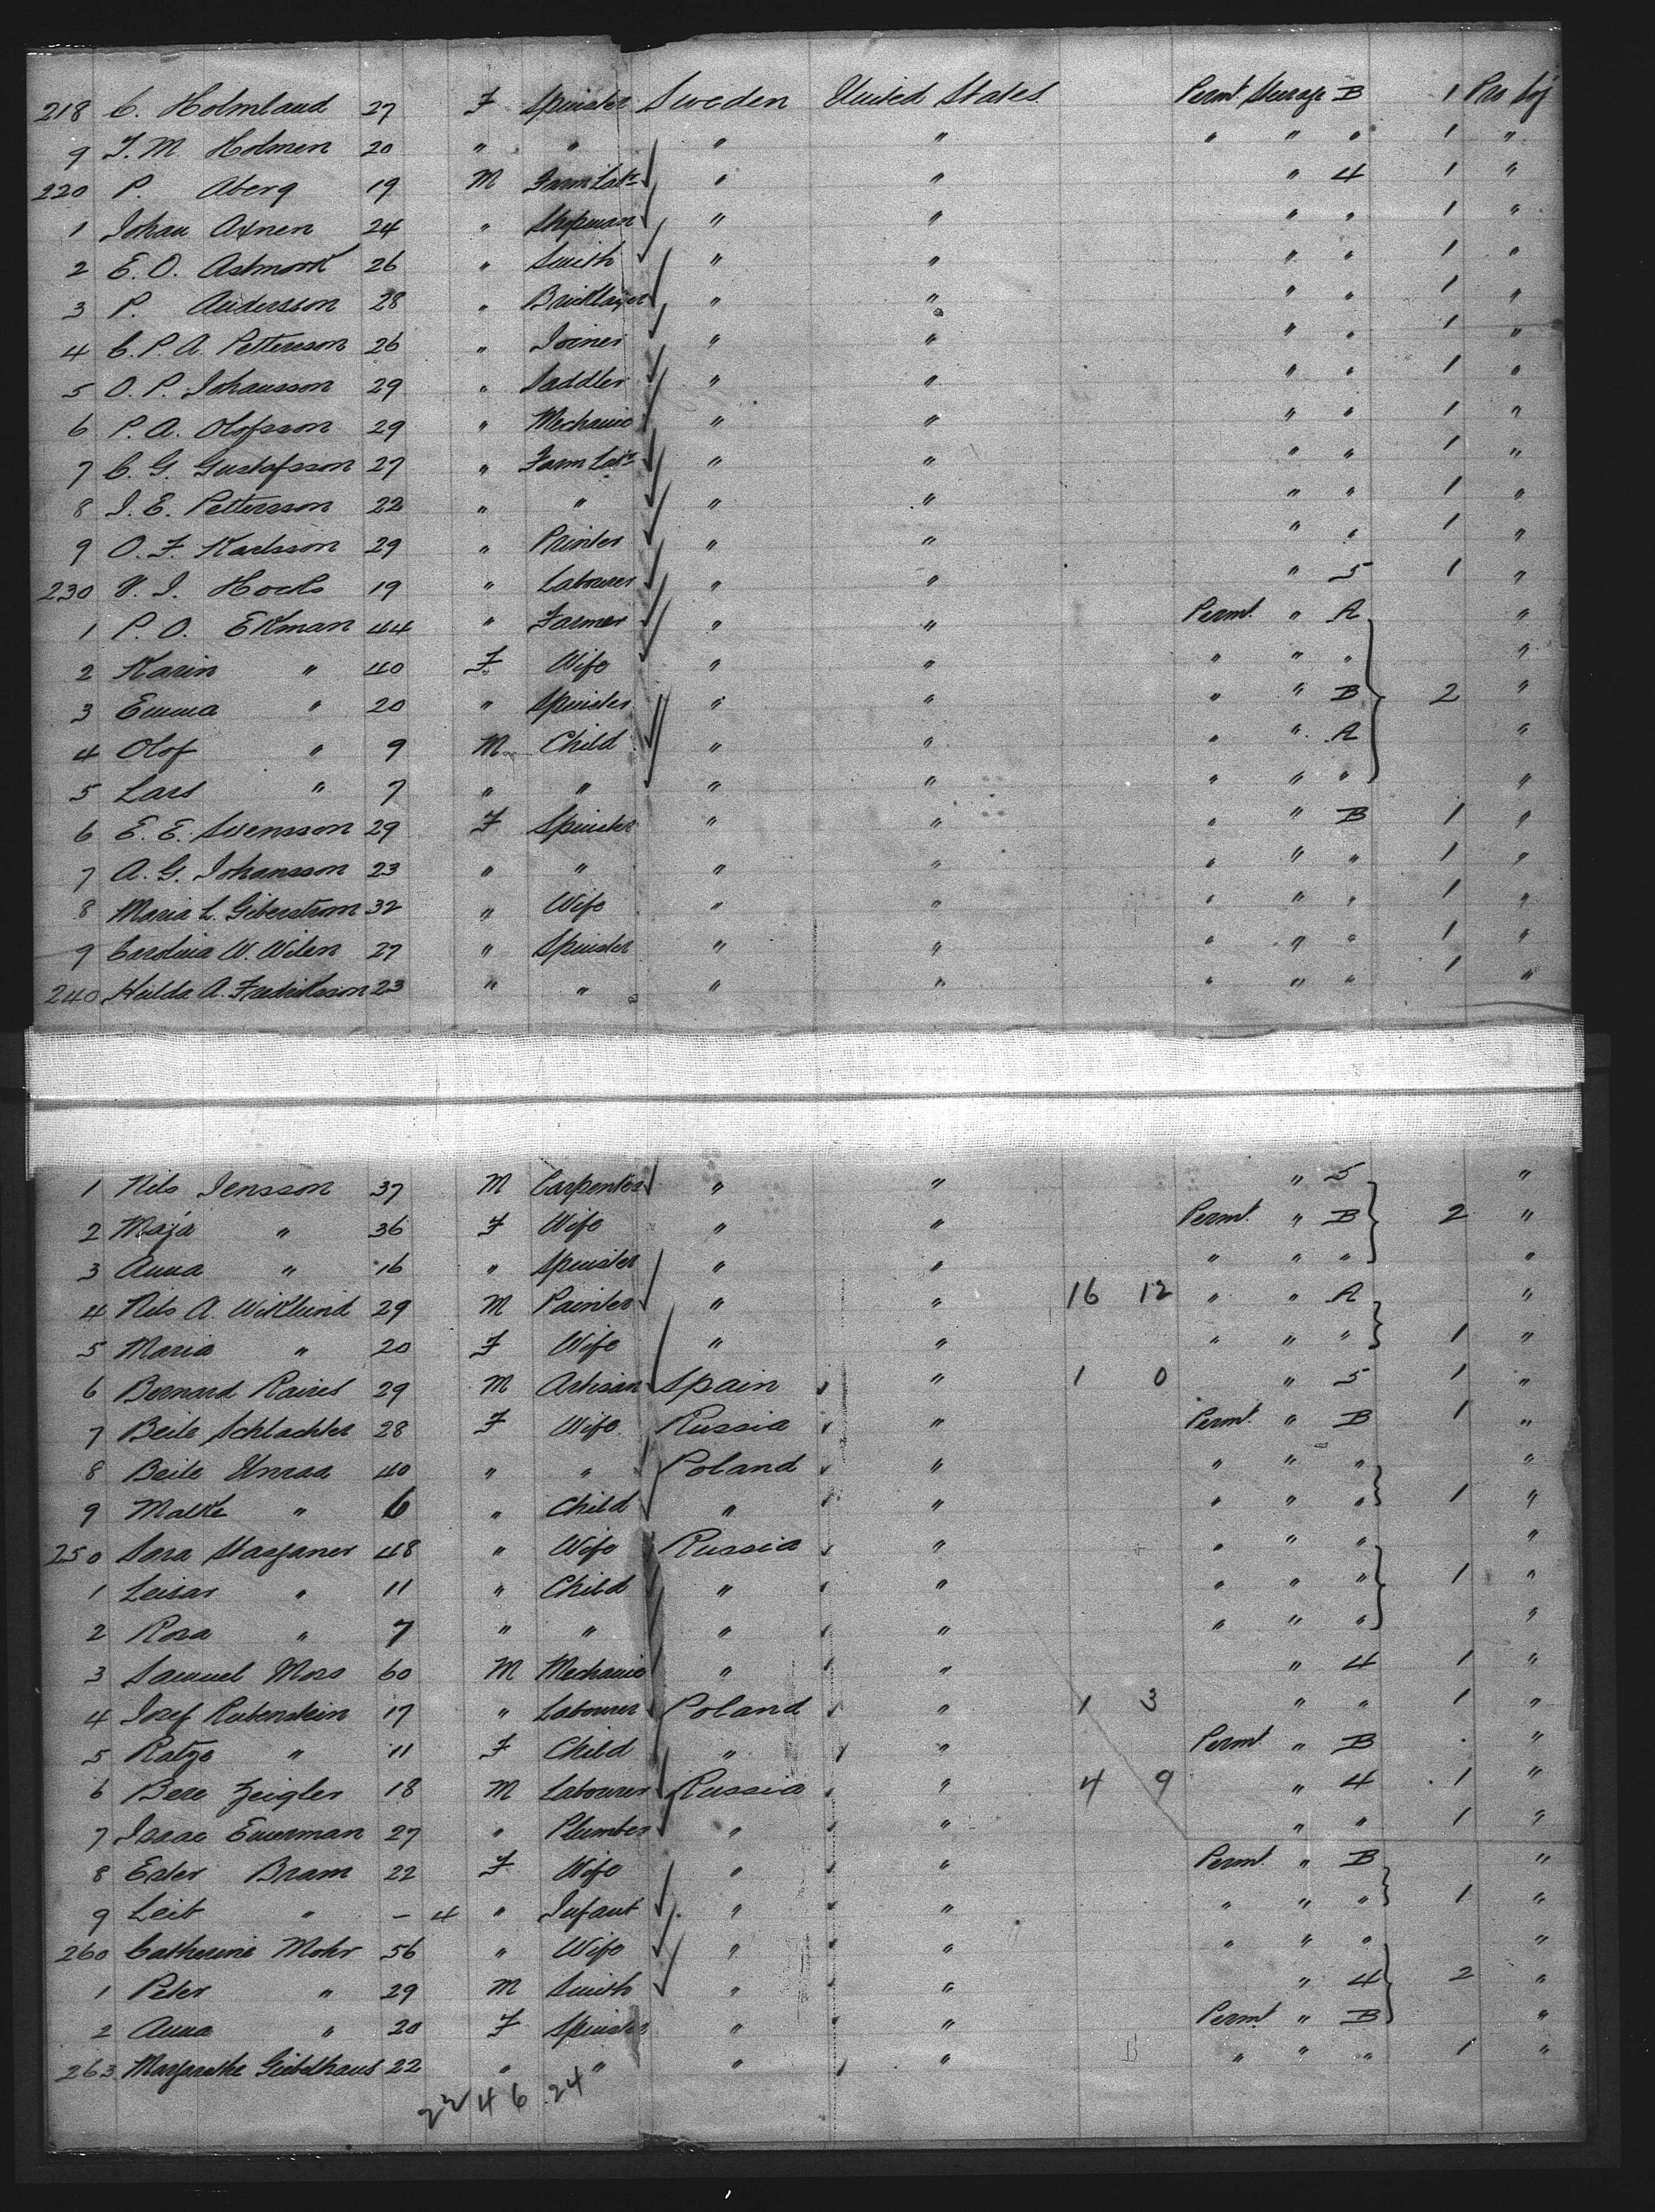 218 C. Holmlund 27 F Spinster Sweden United States Permt. Steerage B 1 Pro Soj
9 T. M. Holmen 20 " " " " " " " 1 "
220 P. Aberg 19 M Farm Labr " " " 4 1 "
1 Johan Axnen 24 " Shopman " " " " 1 "
2 E. O. Astmark 26 " Smith " " " " 1 "
3 P. Andersson 28 " Bricklayer " " " " 1 "
4 C. P. A. Petterson 26 " Joiner " " " " 1 "
5 O. P. Johansson 29 " Saddler " " " " 1 "
6 P. A. Olofsson 29 " Mechanic " " " " 1 "
7 C. G. Gustafsson 27 " Farm Labr " " " " 1 "
8 J. E. Pettersson 22 " " " " " " 1 "
9 O. F. Karlsson 29 " Printer " " " " 1 "
230 V. J. Hock 19 " Labourer " " " 5 1 "
1 P. O. Ekman 44 " Farmer " " Permt. " A "
2 Karin " 40 F Wife " " " " " "
3 Emma " 20 " Spinster " " " " B 2 "
4 Olof " 9 M Child " " " " A "
5 Lars " 7 " " " " " " " "
6 E. E. Svensson 29 F Spinster " " " " B 1 "
7 A. G. Johansson 23 " " " " " " " 1 "
8 Maria L. Giberstrom 32 " Wife " " " " " 1 "
9 Carolina W. Wilen 27 " Spinster " " " " " 1 "
240 Hilda A. Fredriksson 23 " " " " " " " 1 "
1 Nils Jensson 37 M Carpenter " " " 5 "
2 Maja " 36 F Wife " " Permt. " B 2 "
3 Anna " 16 " Spinster " " " " " "
4 Nils A. Wiklund 29 M Painter " " 16 12 " " A "
5 Maria " 20 F Wife " " " " " 1 "
6 Bernard Raires 29 M Artisan Spain " 1 0 " 5 1 "
7 Beile Schlachter 28 F Wife Russia " Permt. " B 1 "
8 Beile Unraa 40 " " Poland " " " " "
9 Malke " 6 " Child " " " " " 1 "
250 Sara Stasganer 48 " Wife Russia " " " " "
1 Leisar " 11 " Child " " " " " 1 "
2 Rosa " 7 " " " " " " " "
3 Samuel Moro 60 M Mechanic " " " 4 1 "
4 Josef Rubenstein 17 " Labourer Poland " 1 3 " " 1 "
5 Ratze " 11 F Child " " Permt. " B "
6 Bere Zeigler 18 M Labourer Russia " 4 9 " 4 1 "
7 Isaac Euerman 27 " Plumber " " " " 1 "
8 Ester Bram 22 F Wife " " Permt. " B "
9 Leib " - 4 " Infant " " " " " 1 "
260 Catherine Mohr 56 " Wife " " " " " "
1 Peter " 29 M Smith " " " 4 2 "
2 Anna " 20 F Spinster " " Permt " B "
263 Margarethe Giebelhaus 22 " " " " " " " 1 "
22 4 6 24